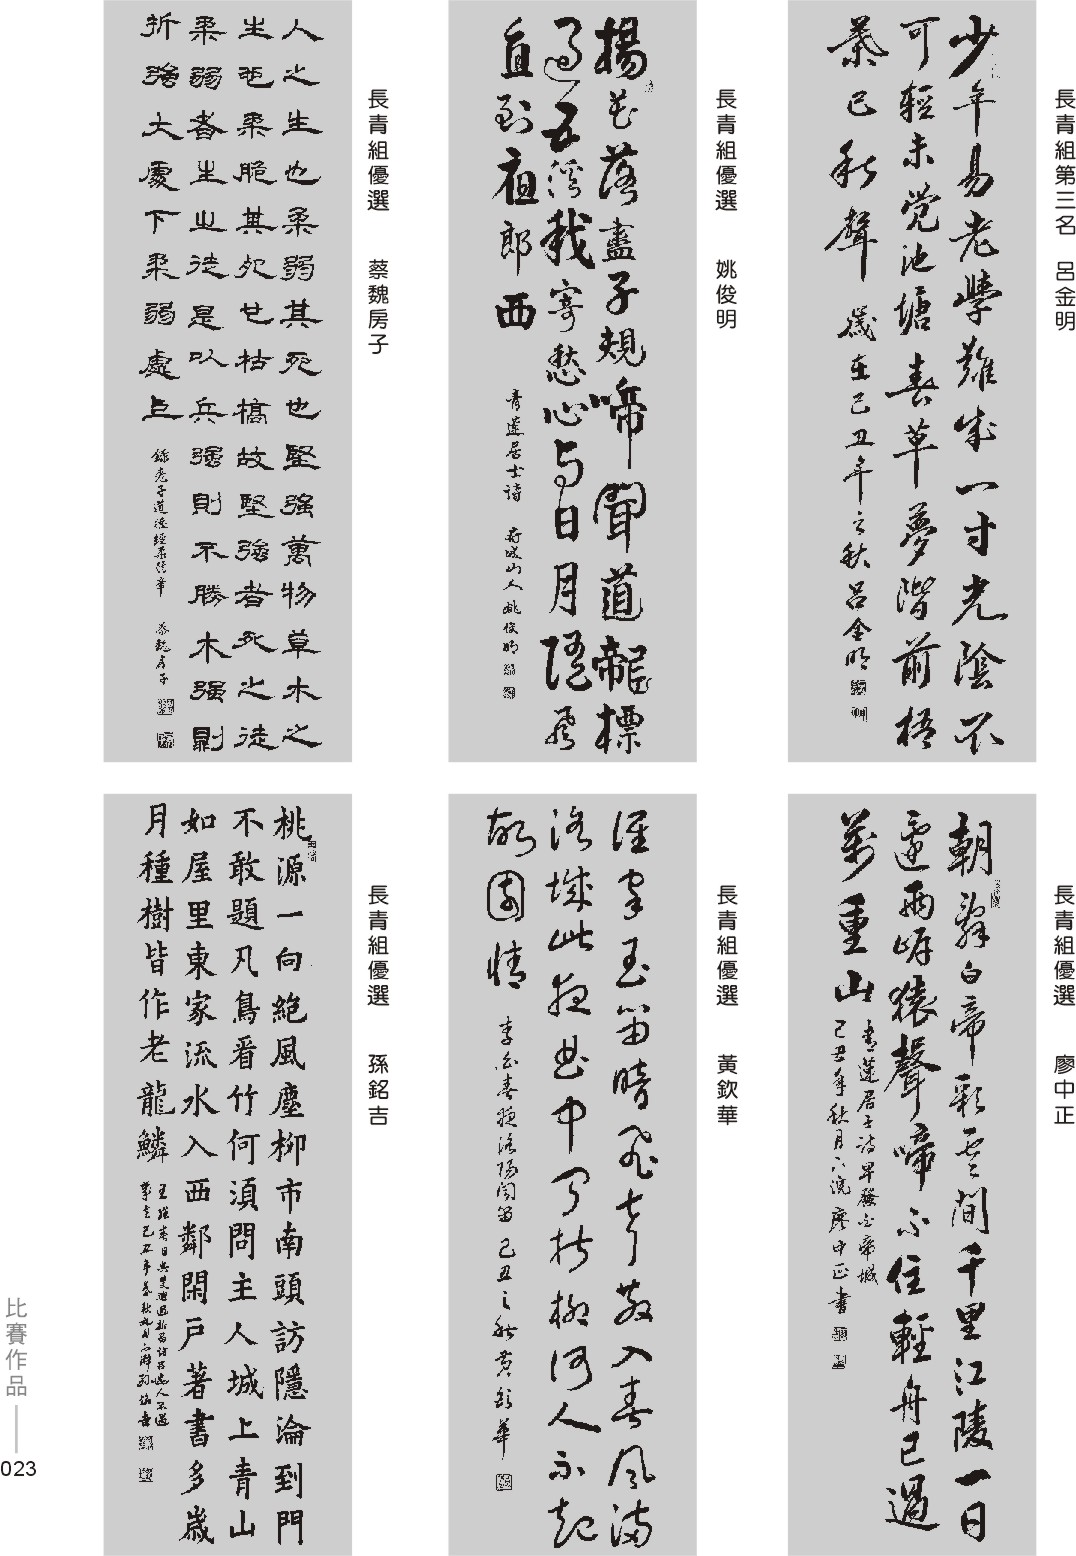 長青組第三名 呂金明
少年易老學難成一寸光陰不
可輕未覺池塘春草夢階前梧
葉已秋聲 歲在己丑年之秋呂金明
長青組優選 姚俊明
楊花落盡子規啼聞道龍標
過五溪我寄愁心与日月隨風
直到夜郎西 青蓮居士詩 府城山人姚俊明
長青組優選 蔡魏房子
人之生也柔弱其死也堅強萬物草木之
生也柔脆其死也枯槁故堅強者死之徒
柔弱者生之徒是以兵強則不勝木强則
折強大處下柔弱處上 錄老子道德經柔弱章 蔡魏房子
長青組優選 廖中正
朝辭白帝彩雲間千里江陵一日
還兩岸猿聲啼不住輕舟已過
萬重山 青蓮居士詩早發白帝城
己丑年秋月下浣廖中正書
長青組優選 黃欽華
誰家玉笛暗飛聲散入春風滿
洛城此夜曲中聞折柳何人不起
故園情 李白春夜洛陽聞笛 己丑之秋黃欽華
長青組優選 孫銘吉
桃源一向絕風塵柳市南頭訪隱淪到門
不敢題凡鳥看竹何須問主人城上青山
如屋里東家流水入西鄰閑戶著書多歲
月種樹皆作老龍鱗 王維春日與裴迪過新昌訪呂逸人不遇
歲在己丑年 秋九月 孫銘吉
比賽作品
023